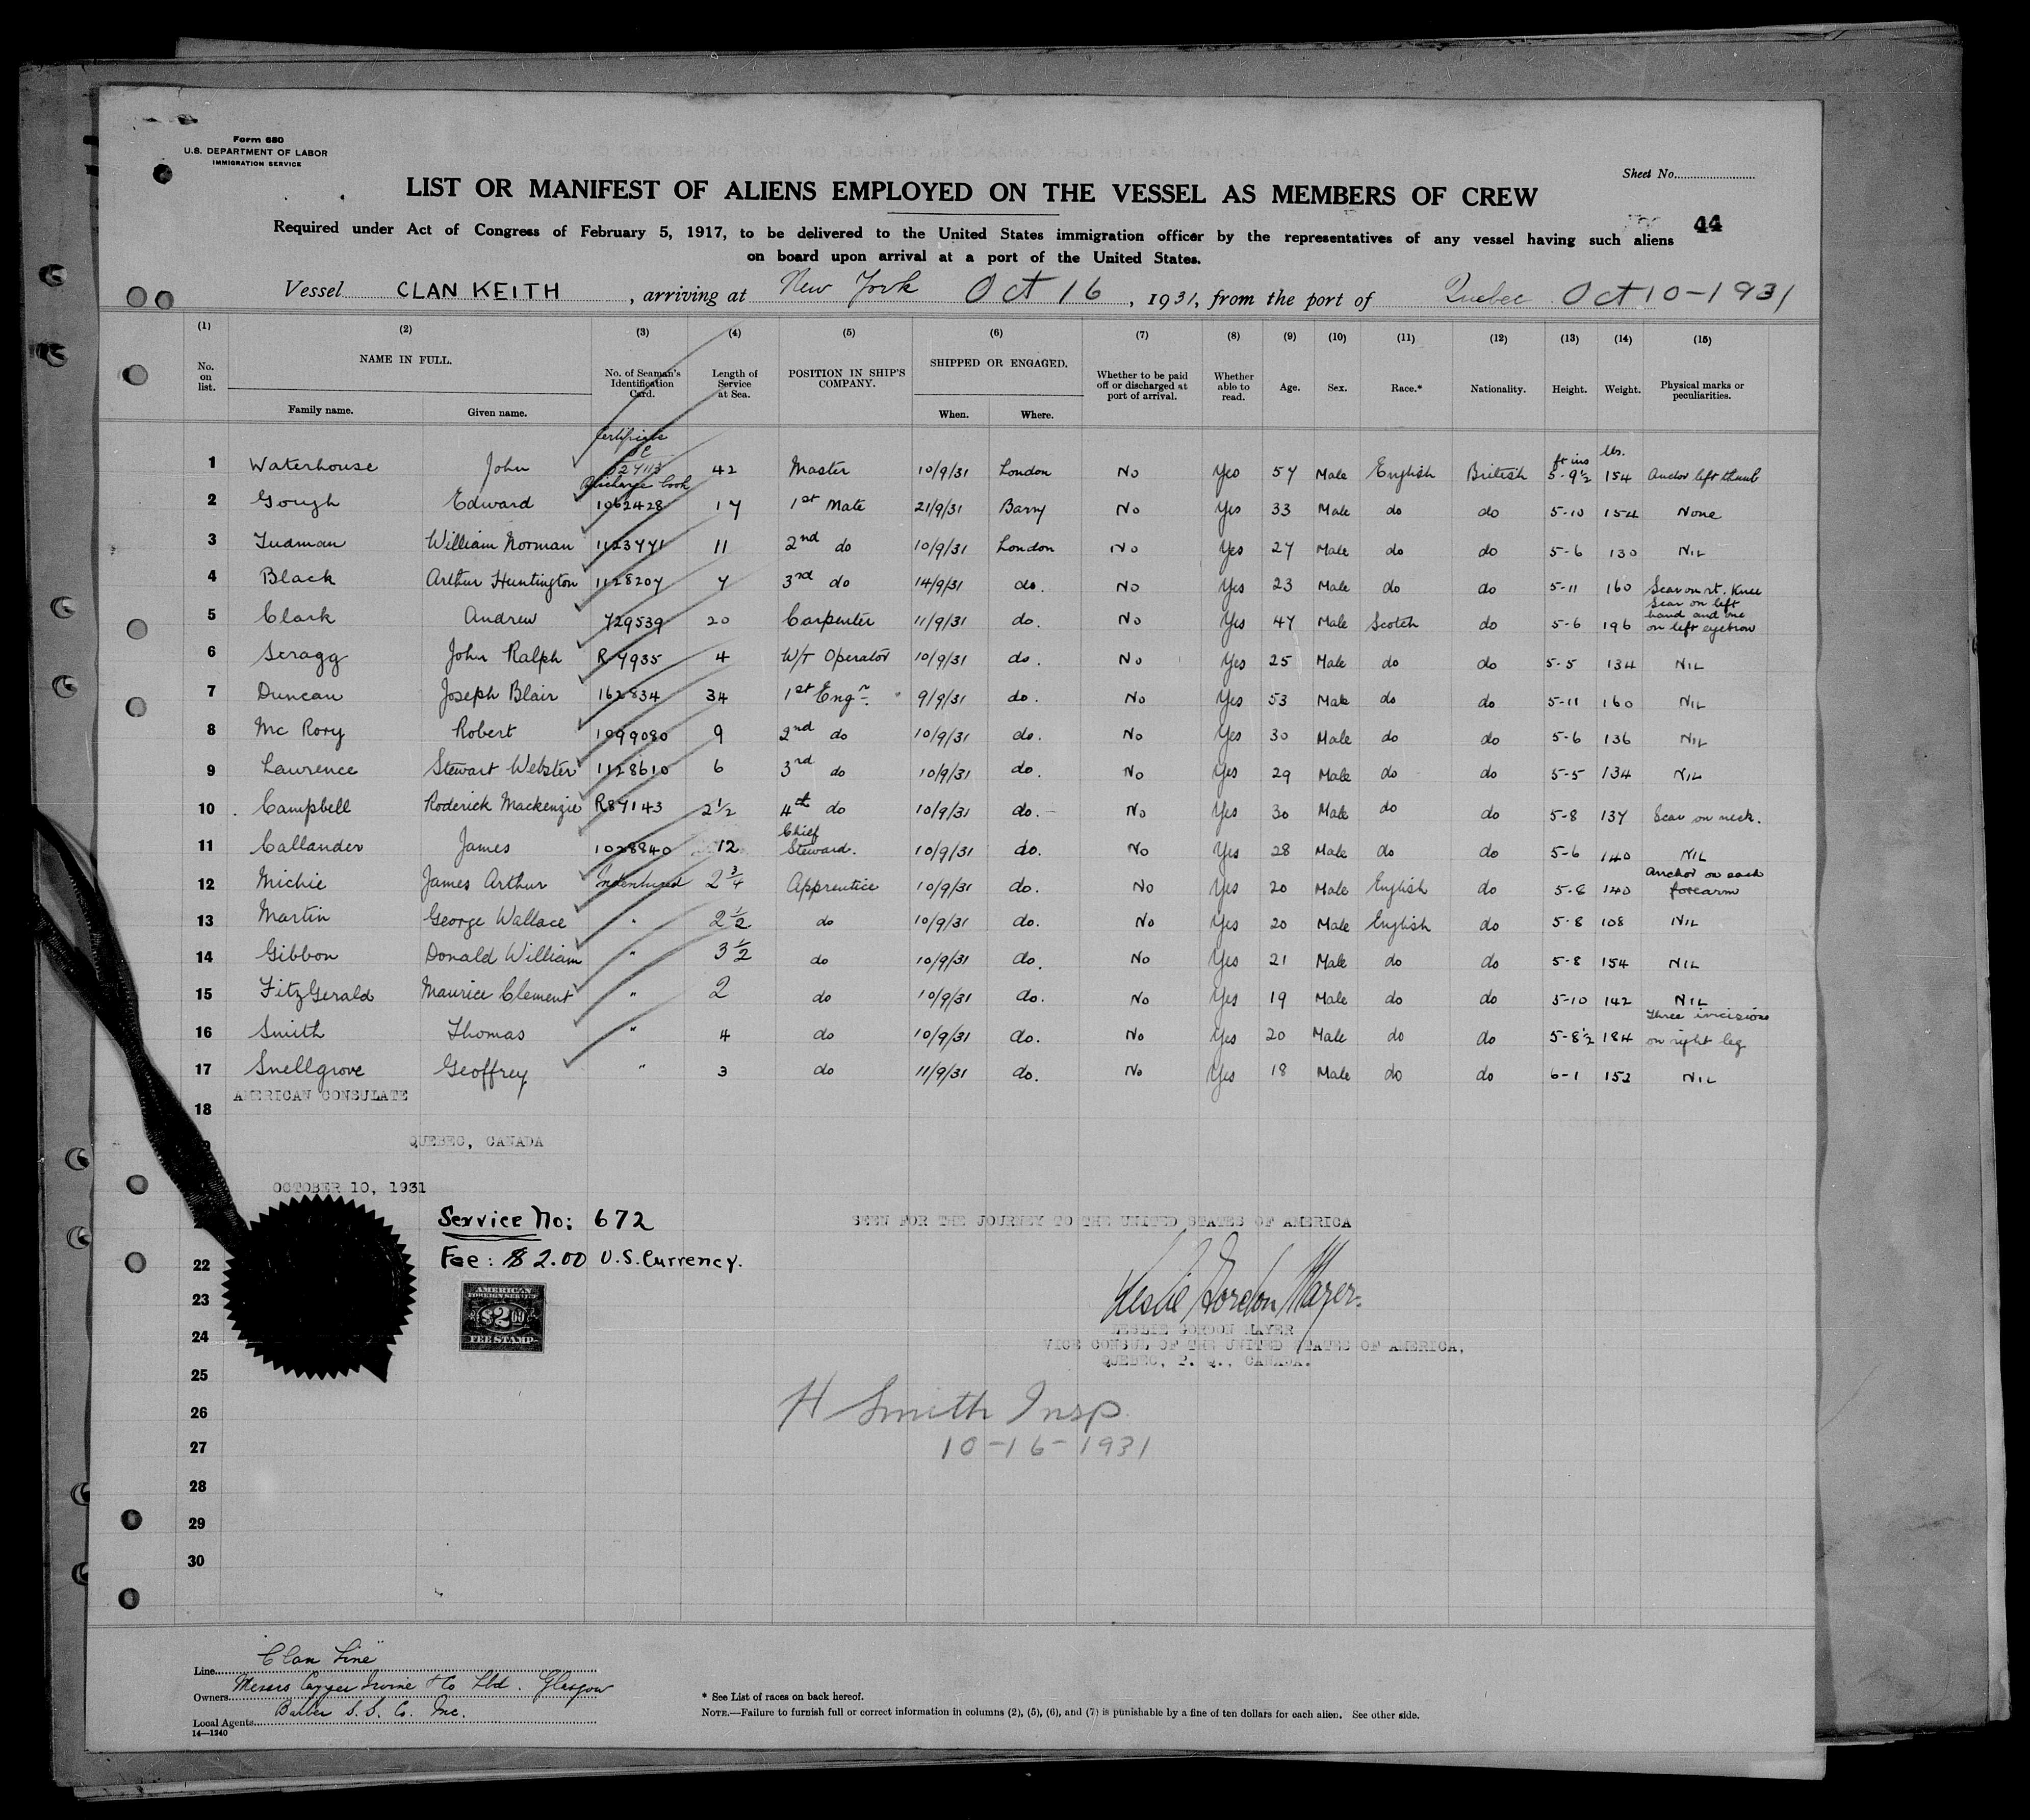 Form 680
U.S. DEPARTMENT OF LABOR
IMMIGRATION SERVICE
Sheet No.
LIST OR MANIFEST OF ALIENS EMPLOYED ON THE VESSEL AS MEMBERS OF CREW
44
Required under Act of Congress of February 5, 1917, to be delivered to the United States immigration officer by the representatives of any vessel having such aliens
on board upon arrival at a port of the United States.
Vessel CLAN KEITH, arriving at New York Oct 16, 1931, from the port of Quebec Oct 10-1931
(1) (2) (3) (4) (5) (6) (7) (8) (9) (10) (11) (12) (13) (14) (15)
No. on list. NAME IN FULL. Family name. Given name. No. of Seaman's Identification Card. Length of Service at Sea. POSITION IN SHIP'S COMPANY. SHIPPED OR ENGAGED. When. Where. Whether to be paid off or discharged at port of arrival. Whether able to read. Age. Sex. Race.* Nationality. Height. Weight. Physical marks or peculiarities.
Certificate
ft ins lbs.
1 Waterhouse John 42 Master 10/9/31 London No Yes 57 Male English British 5-9½ 154 Anchor left thumb
Discharge book
2 Gough Edward 1062428 17 1st Mate 21/9/31 Barry No Yes 33 Male do do 5-10 154 None
3 Tudman William Norman 1123771 11 2nd do 10/9/31 London No Yes 27 Male do do 5-6 130 NIL
4 Black Arthur Huntington 1128207 7 3rd do 14/9/31 do. No Yes 23 Male do do 5-11 160 Scar on rt. Knee
5 Clark Andrew 729539 20 Carpenter 11/9/31 do. No Yes 47 Male Scotch do 5-6 196 Scar on left hand and one on left eyebrow
6 Scragg John Ralph R7935 4 W/T Operator 10/9/31 do. No Yes 25 Male do do 5-5 134 NIL
7 Duncan Joseph Blair 162834 34 1st Engr. 9/9/31 do. No Yes 53 Male do do 5-11 160 NIL
8 Mc Rory Robert 1099080 9 2nd do 10/9/31 do. No Yes 30 Male do do 5-6 136 NIL
9 Lawrence Stewart Webster 1128610 6 3rd do 10/9/31 do. No Yes 29 Male do do 5-5 134 NIL
10 Campbell Roderick Mackenzie R87143 2½ 4th do 10/9/31 do. No Yes 30 Male do do 5-8 137 Scar on neck.
11 Callander James 1028840 12 Chief Steward. 10/9/31 do. No Yes 28 Male do do 5-6 140 NIL
12 Michie James Arthur Indentured 2¾ Apprentice 10/9/31 do. No Yes 20 Male English do 5-8 140 Anchor on each forearm
13 Martin George Wallace " 2½ do 10/9/31 do. No Yes 20 Male English do 5-8 108 NIL
14 Gibbon Donald William " 3½ do 10/9/31 do. No Yes 21 Male do do 5-8 154 NIL
15 FitzGerald Maurice Clement " 2 do 10/9/31 do. No Yes 19 Male do do 5-10 142 NIL
16 Smith Thomas " 4 do 10/9/31 do. No Yes 20 Male do do 5-8½ 184 Three incisions on right leg
17 Snellgrove Geoffrey " 3 do 11/9/31 do. No Yes 18 Male do do 6-1 152 NIL
AMERICAN CONSULATE
18
QUEBEC, CANADA
OCTOBER 10, 1931
Service No: 672
SEEN FOR THE JOURNEY TO THE UNITED STATES OF AMERICA
Fee: $2.00 U.S. Currency.
22
AMERICAN
FOREIGN SERVICE
$2.00
FEE STAMP
23
Leslie Gordon Mayer
LESLIE GORDON MAYER
24
VICE CONSUL OF THE UNITED STATES OF AMERICA,
QUEBEC, P. Q., CANADA.
25
26
H Smith Insp
27
10-16-1931
28
29
30
Line "Clan Line"
Owners Messrs Cayzer Irvine & Co Ltd. Glasgow
Local Agents Barber S.S. Co. Inc.
14—1240
* See List of races on back hereof.
NOTE.—Failure to furnish full or correct information in columns (2), (5), (6), and (7) is punishable by a fine of ten dollars for each alien. See other side.